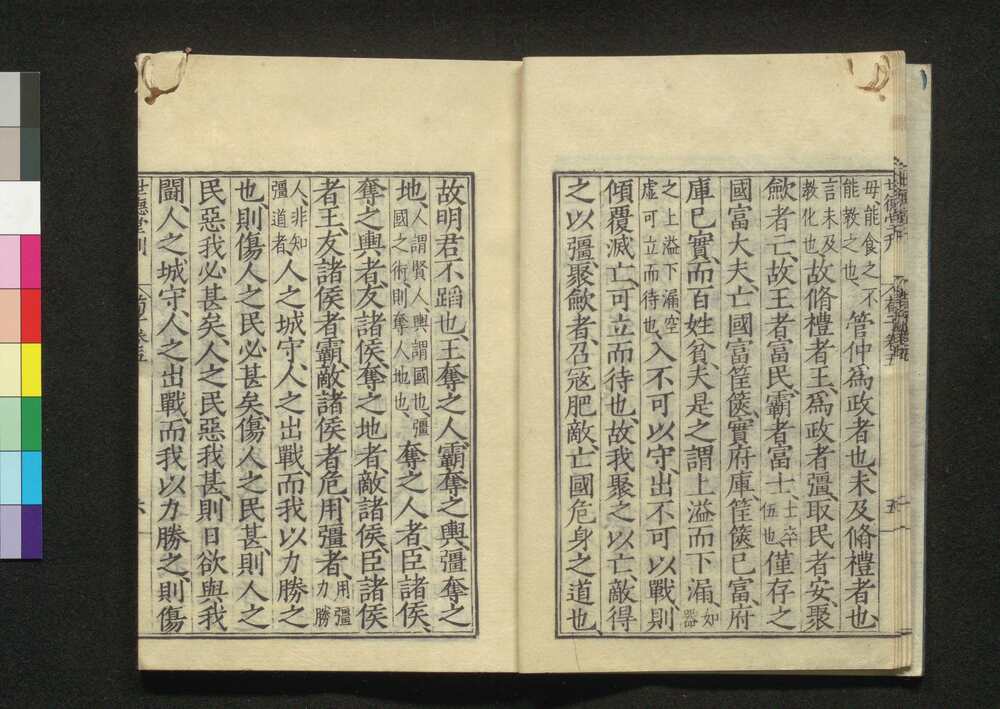 世德堂刊 荀子卷五 五
毋、能食之、不能教之也、管仲、爲政者也、未及脩禮者也、
言未及教化也、故脩禮者王、爲政者彊、取民者安、聚
歛者亡、故王者富民、霸者富士、士卒伍也、僅存之
國富大夫、亡國富筐篋、實府庫、筐篋已富、府
庫已實、而百姓貧、夫是之謂上溢而下漏、如器
之上溢下漏、空虛可立而待也、入不可以守、出不可以戰、則
傾覆滅亡、可立而待也、故我聚之以亡、敵得
之以彊、聚歛者、召寇肥敵、亡國危身之道也、
故明君不蹈也、王奪之人、霸奪之輿、彊奪之
地、人謂賢人、輿謂國也、彊國之術、則奪人地也、奪之人者、臣諸侯、
奪之輿者、友諸侯、奪之地者、敵諸侯、臣諸侯
者王、友諸侯者霸、敵諸侯者危、用彊者、用彊力勝
人、非知彊道者、人之城守、人之出戰、而我以力勝之
也、則傷人之民必甚矣、傷人之民甚、則人之
民惡我必甚矣、人之民惡我甚、則日欲與我
鬭、人之城守、人之出戰、而我以力勝之、則傷
世德堂刊 荀子卷五 六